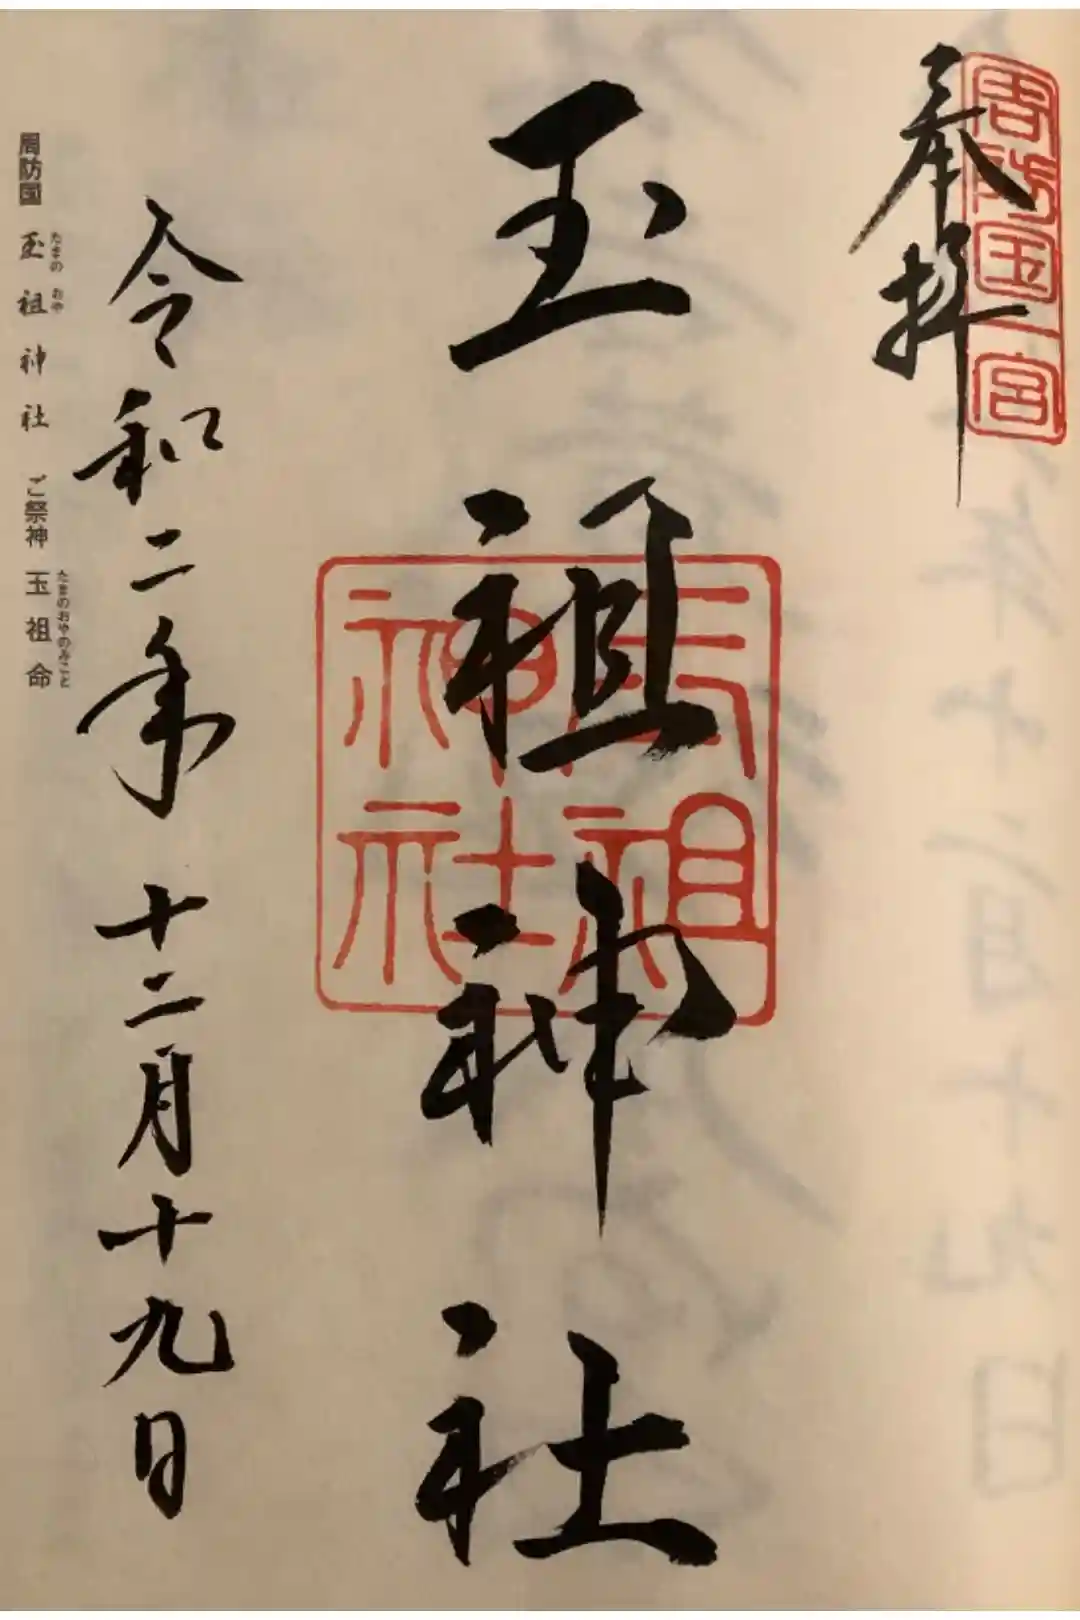 奉拝
周防国一宮
玉祖神社
玉祖神社
令和二年 十二月十九日
周防国 玉祖神社 ご祭神 玉祖命
たまの おや
たまのおやのみこと